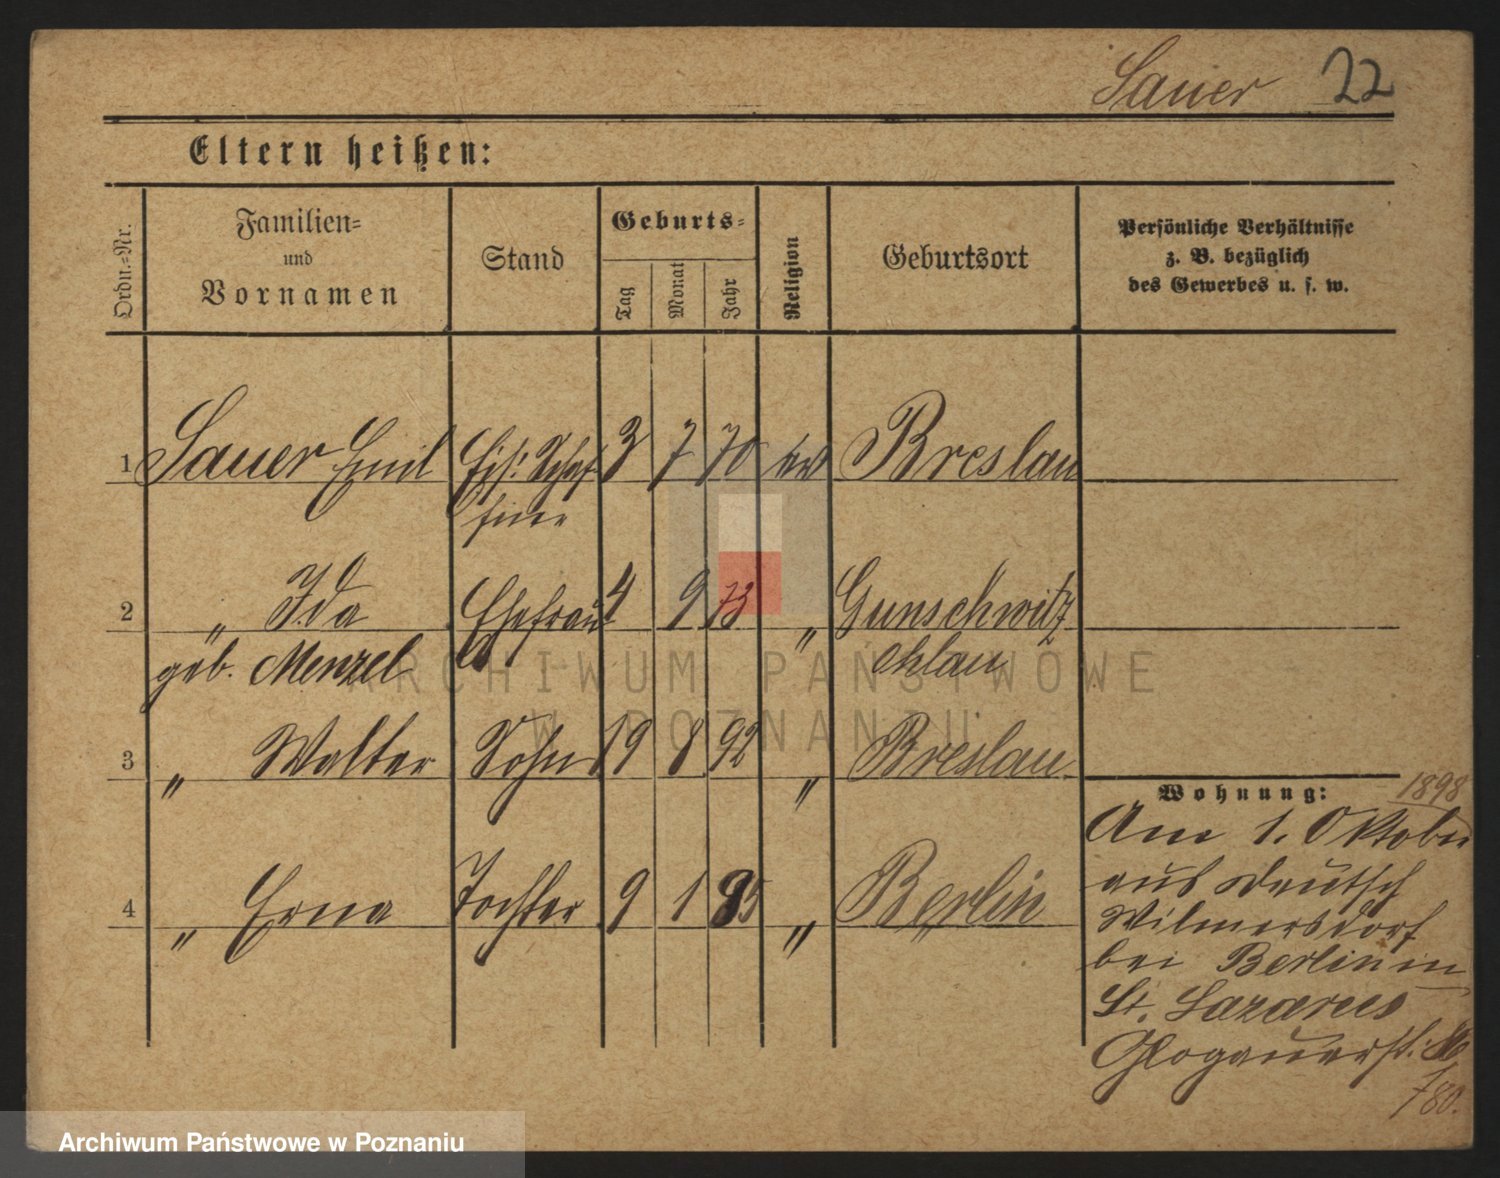 Sauer 22
Eltern heißen:
Ordn.-Nr.
Familien-
und
Vornamen
Stand
Geburts-
Tag
Monat
Jahr
Religion
Geburtsort
Persönliche Verhältnisse
z. B. bezüglich
des Gewerbes u. s. w.
1 Sauer Emil Eis. Schaf- 3 7 70 ev Breslau
finer
2 " Ida Ehefrau 4 9 73 " Gunschwitz
geb. Menzel Ohlau
3 " Walter Sohn 19 8 92 " Breslau
4 " Erna Tochter 9 1 95 " Berlin
Wohnung: 1898
Am 1. Oktober
aus Deutsch
Wilmersdorf
bei Berlin in
St. Lazarus
Glogauerst.
780.
ARCHIWUM PAŃSTWOWE
W POZNANIU
Archiwum Państwowe w Poznaniu